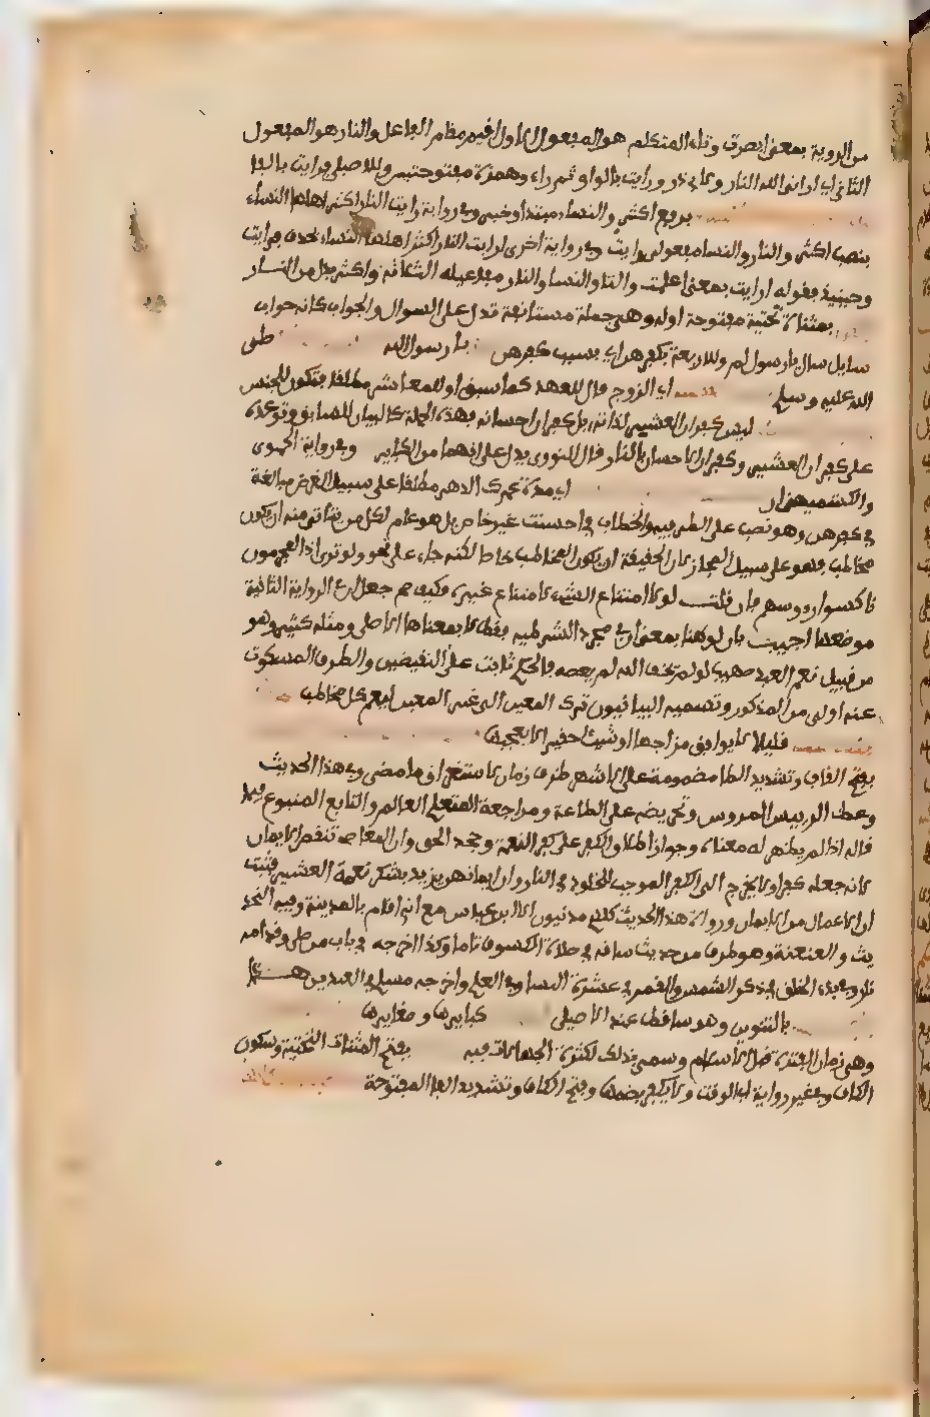 من الروية بمعنى ابصرت وتاء المتكلم هو المفعول الاول اقيم مقام الفاعل والنار هو المفعول
الثاني اي اراني الله النار ولابي ذر ورايت بالواو ثم راء وهمزة مفتوحتين وللاصيلي فرايت بالفا
برفع اكثر والنساء مبتدا وخبر وفي رواية رايت النار اكثر اهلها النساء
بنصب اكثر والنار والنساء مفعولي رايت وفي رواية اخرى اريت النار اكثر اهلها النساء بحذف فرايت
وحينيذ فقوله اريت بمعنى اعلمت والتا والنسا والنار مفاعيله الثلاثة واكثر بدل من النار
بمثناة تحتية مفتوحة اوله وهي جملة مستانفة تدل على السوال والجواب كانه جواب
سايل سال يا رسول لم وللاربعة بكفرهن اي بسبب كفرهن يا رسول الله صلى
الله عليه وسلم اي الزوج فال للعهد كما سبق او للمعاشر مطلقا فتكون للجنس
ليس كفران العشير لذاته بل كفران احسانه فهذه الجملة كالبيان للسابق وتوعده
على كفران العشير وكفران الاحسان بالنار قال النووي يدل على انهما من الكباير وفي رواية الحموي
والكشميهني ان اي مدة عمرك الدهر مطلقا على سبيل الفرض مبالغة
في كفرهن وهو نصب على الظرفية والخطاب في احسنت غير خاص بل هو عام لكل من يتاتى منه ان يكون
مخاطب فهو على سبيل المجاز لان الحقيقة ان يكون المخاطب خاصا لكنه جاء على نحو ولو ترى اذ المجرمون
ناكسوا رووسهم فان قلت لو لامتناع الشيء لامتناع غيره فكيف صح جعل ان في الرواية الثانية
موضعها اجيب بان لو هنا بمعنى ان في مجرد الشرطية فقط لا بمعناها الاصلي ومثله كثير وهو
من قبيل نعم العبد صهيب لو لم يخف الله لم يعصه فالحكم ثابت على النقيضين والطرف المسكوت
عنه اولى من المذكور وتسميه البيانيون ترك المعين الى غير المعين ليعم كل مخاطب
قليلا لا يوافق مزاجها او شيئا حقيرا لا يعجبها
بفتح القاف وتشديد الطا مضمومة على الاشهر ظرف زمان لاستغراق ما مضى وفي هذا الحديث
وعظ الرييس المروس وتحريضه على الطاعة ومراجعة المتعلم العالم والتابع المتبوع فيما
قاله اذا لم يظهر له معناه وجواز اطلاق الكفر على كفر النعمة وجحد الحق وان المعاصي تنقص الايمان
لانه جعله كفرا ولا يخرج الى الكفر الموجب للخلود في النار وان ايمانهن يزيد بشكر نعمة العشير فثبت
ان الاعمال من الايمان ورواة هذا الحديث كلهم مدنيون الا ابن عباس مع انه اقام بالمدينة وفيه التحد
يث والعنعنة وهو طرف من حديث ساقه في صلاة الكسوف تاما وكذا اخرجه في باب من صلى وقدامه
نار وفي بدء الخلق في ذكر الشمس والقمر في عشرة النسا وفي العلم واخرجه مسلم في العيدين هذا
بالتنوين وهو ساقط عند الاصيلي كبايرها وصغايرها
وهي زمان الفترة قبل الاسلام وسمي بذلك لكثرة الجهالات فيه بفتح المثناة التحتية وسكون
الكاف وفي غير رواية ابي الوقت ولا يكفر بضمها وفتح الكاف وتشديد الفا المفتوحة